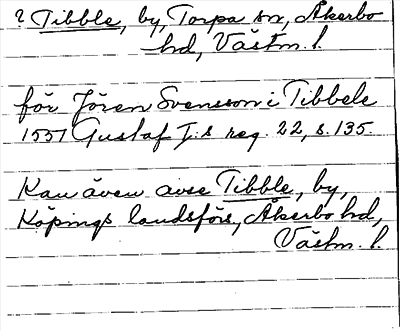 ? Tibble, by, Torpa sn, Åkerbo
hd, Västm. l.
för Jören Svensson i Tibbele
1551 Gustaf I:s reg. 22, s. 135.
Kan även avse Tibble, by,
Köpings landsförs, Åkerbo hd,
Västm. l.